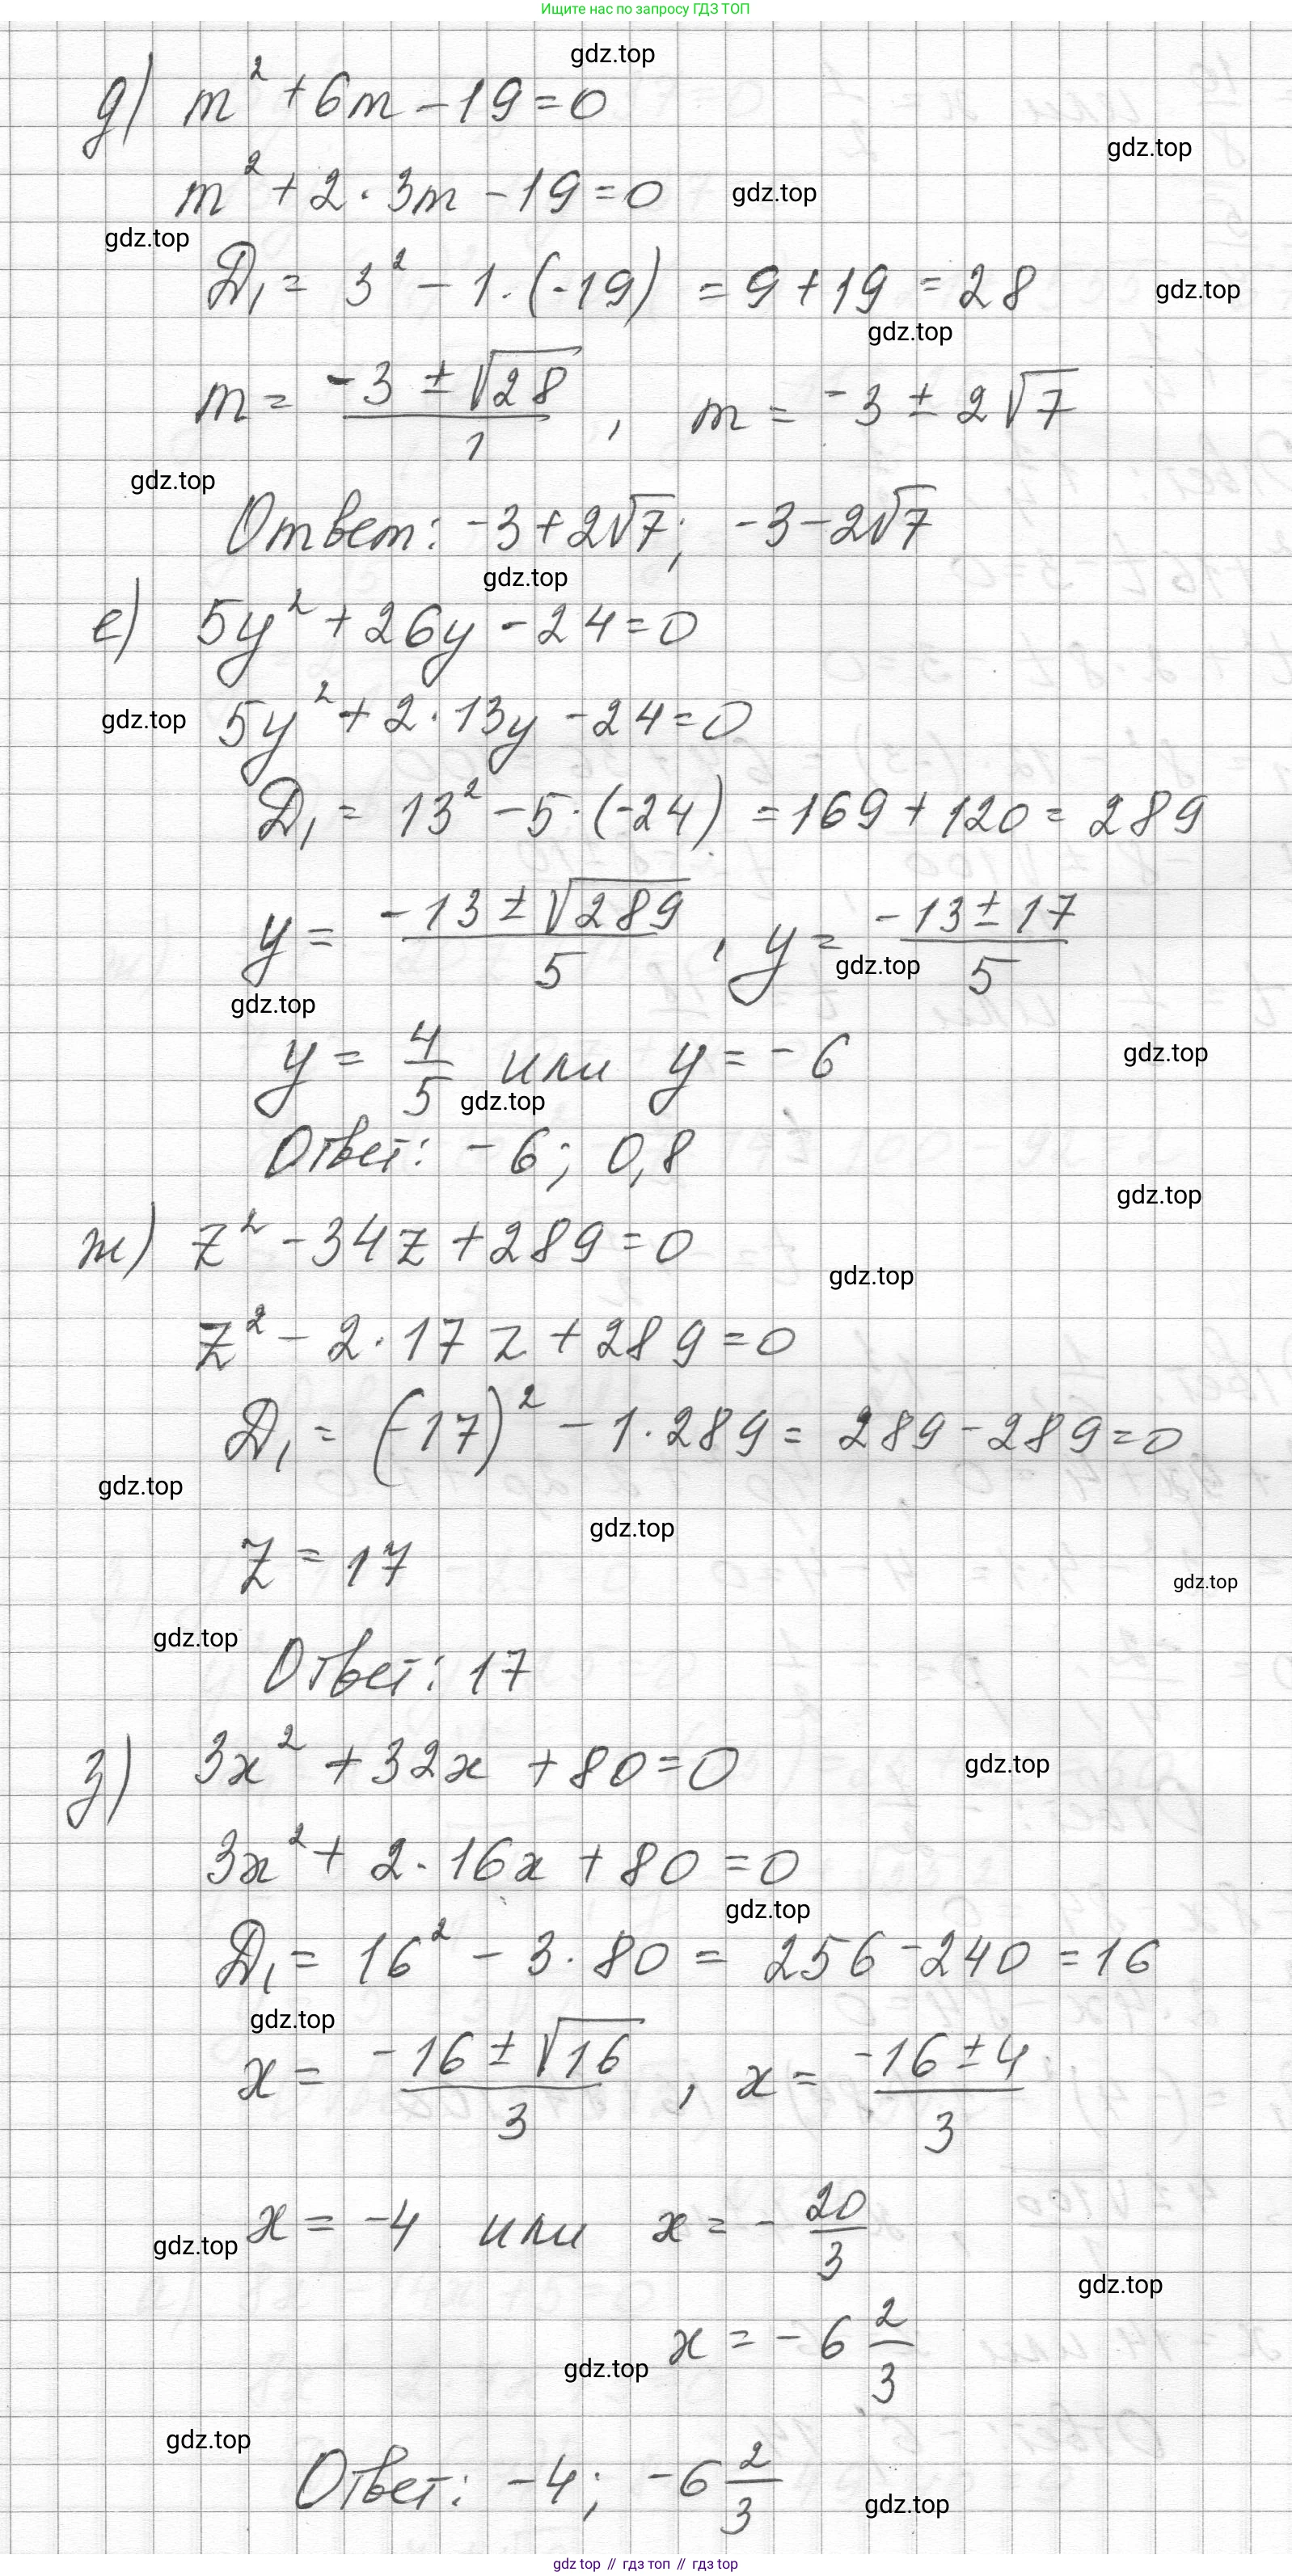 Ищите нас по запросу ГДЗ ТОП
gdz.top
д) m² + 6m - 19 = 0
gdz.top
m² + 2 · 3m - 19 = 0
gdz.top
gdz.top
D₁ = 3² - 1 · (-19) = 9 + 19 = 28
gdz.top
gdz.top
m = (-3 ± √28)/1 , m = -3 ± 2√7
gdz.top
Ответ: -3 + 2√7; -3 - 2√7
gdz.top
е) 5y² + 26y - 24 = 0
gdz.top
5y² + 2 · 13y - 24 = 0
D₁ = 13² - 5 · (-24) = 169 + 120 = 289
y = (-13 ± √289)/5 , y = (-13 ± 17)/5
gdz.top
gdz.top
y = 4/5 или y = -6
gdz.top
gdz.top
Ответ: -6; 0,8
gdz.top
ж) z² - 34z + 289 = 0
gdz.top
z² - 2 · 17z + 289 = 0
D₁ = (-17)² - 1 · 289 = 289 - 289 = 0
gdz.top
gdz.top
z = 17
gdz.top
gdz.top
Ответ: 17
з) 3x² + 32x + 80 = 0
gdz.top
3x² + 2 · 16x + 80 = 0
gdz.top
D₁ = 16² - 3 · 80 = 256 - 240 = 16
gdz.top
x = (-16 ± √16)/3 , x = (-16 ± 4)/3
x = -4 или x = -20/3
gdz.top
gdz.top
x = -6 2/3
gdz.top
gdz.top
Ответ: -4; -6 2/3
gdz.top
gdz.top // гдз топ // гдз top